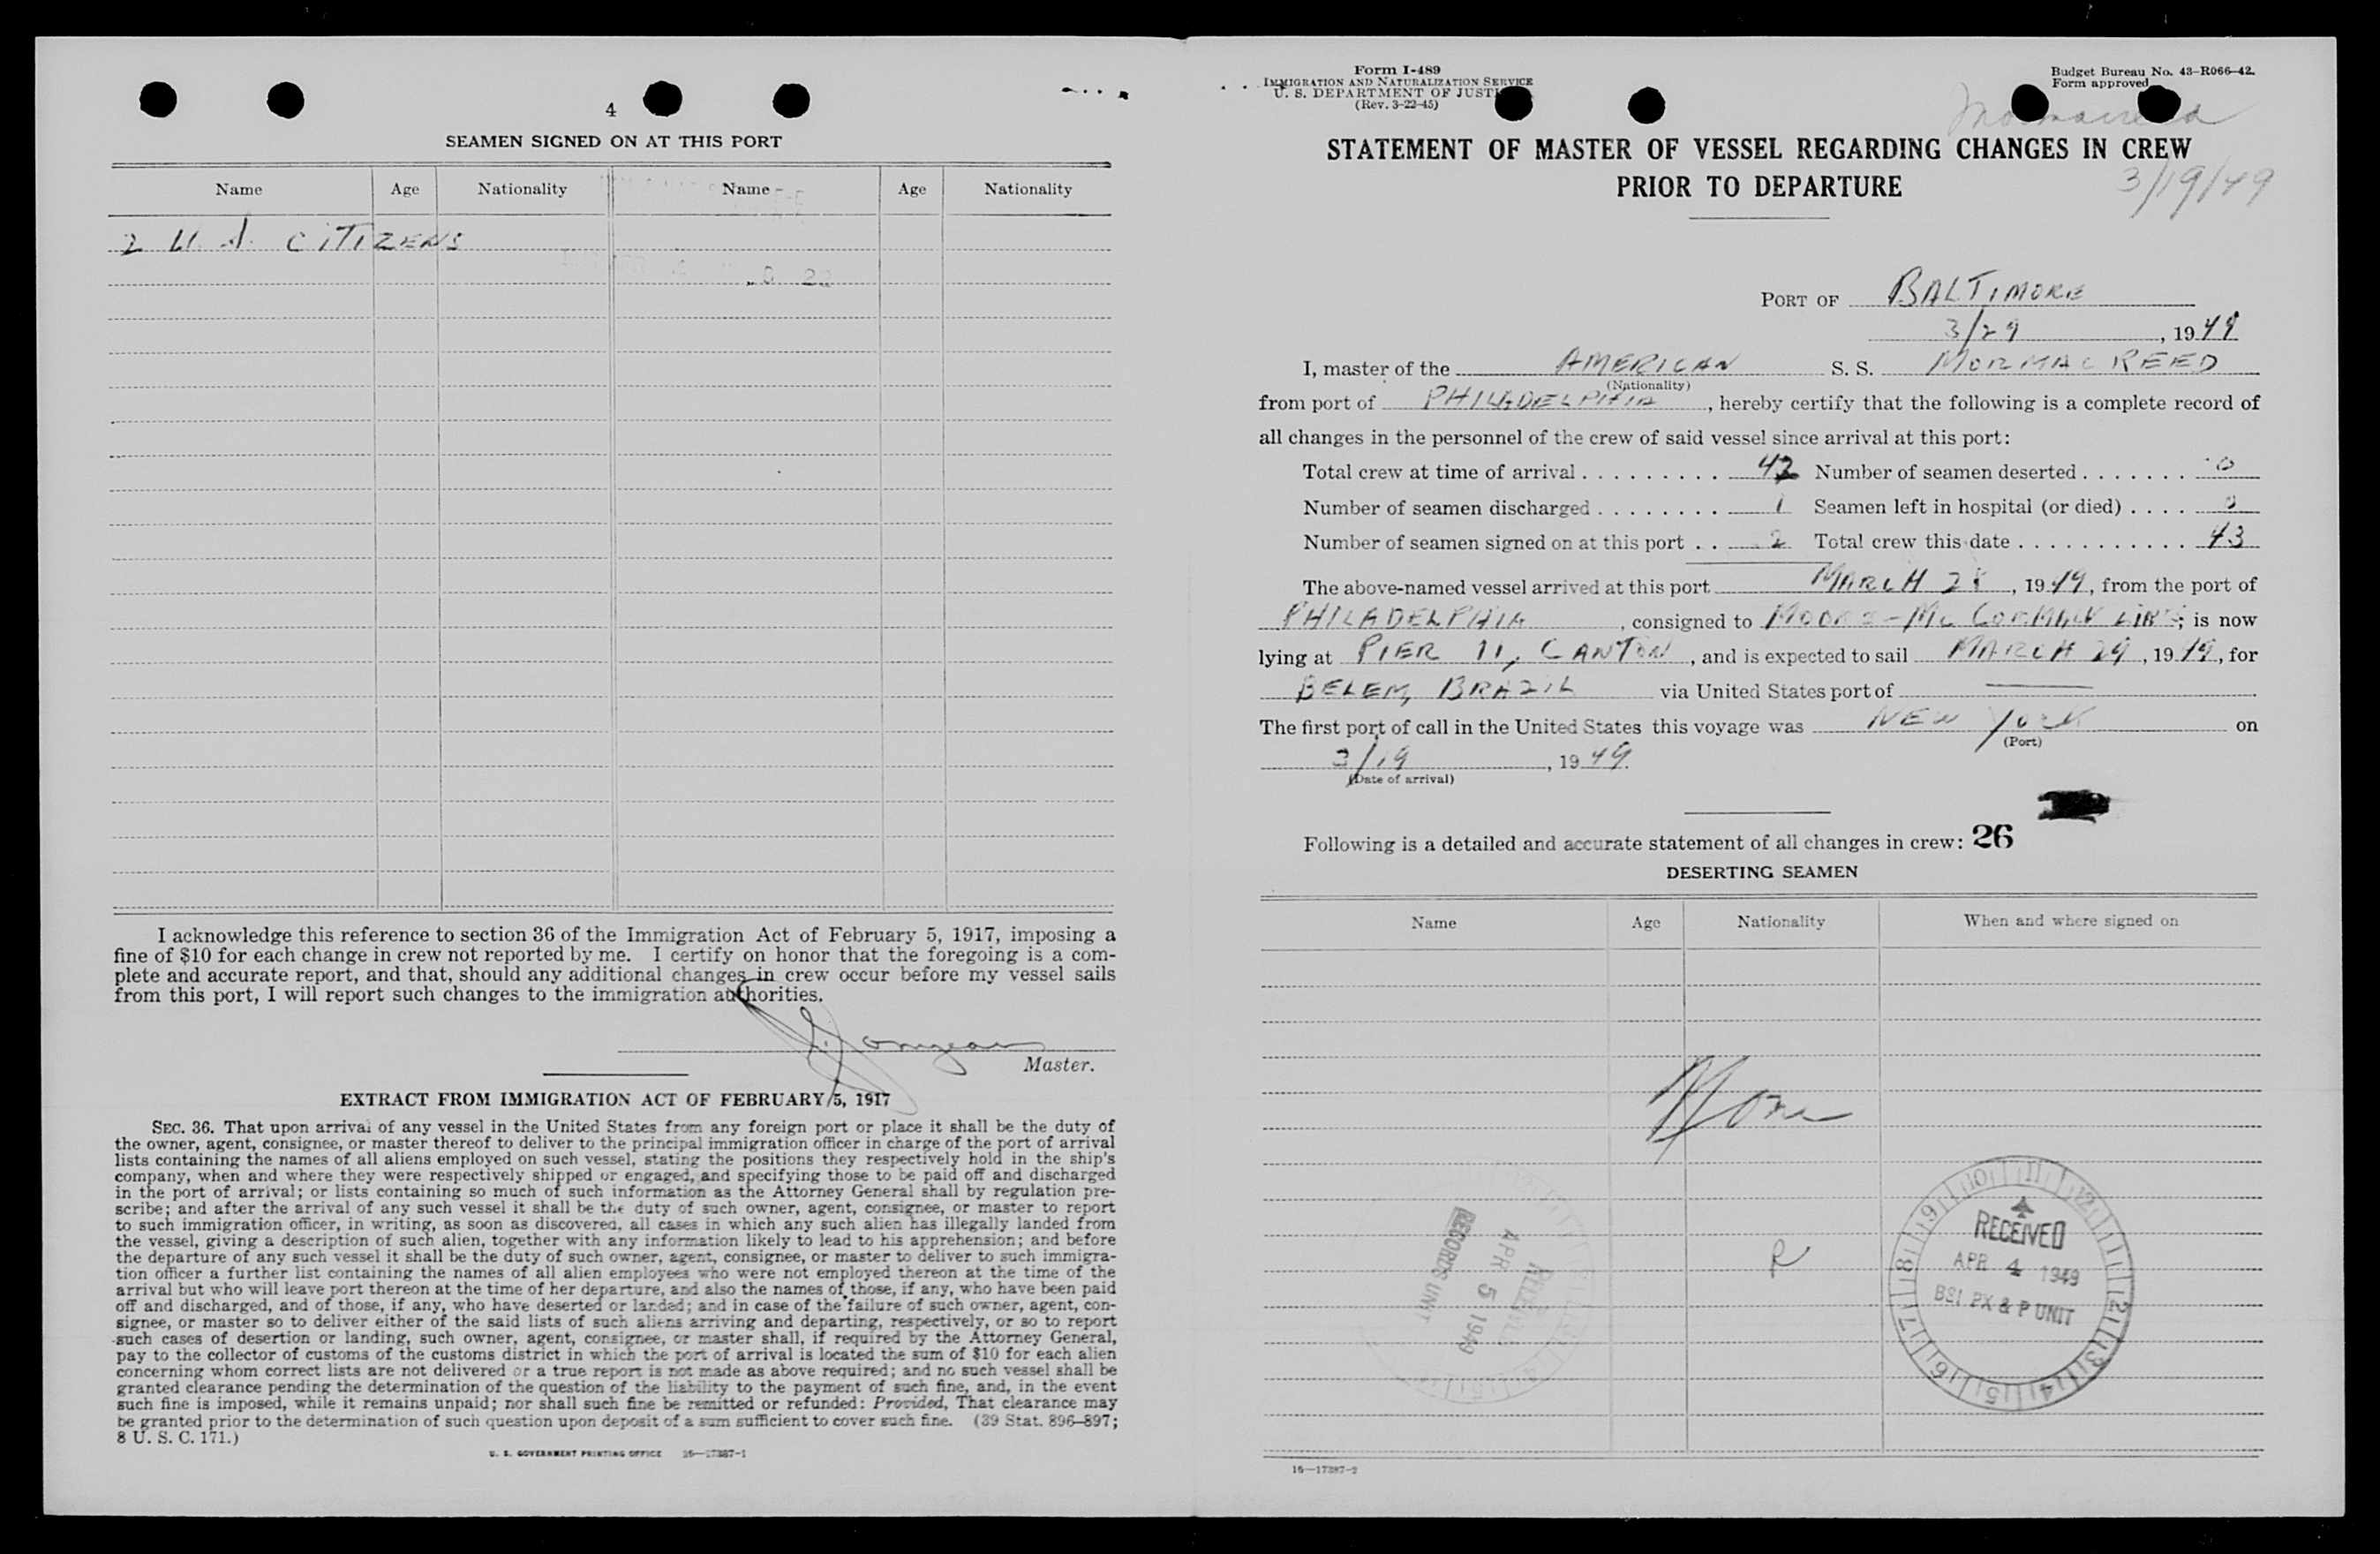 4
SEAMEN SIGNED ON AT THIS PORT
Name Age Nationality Name Age Nationality
2 U.S. CITIZENS
I acknowledge this reference to section 36 of the Immigration Act of February 5, 1917, imposing a
fine of $10 for each change in crew not reported by me. I certify on honor that the foregoing is a com-
plete and accurate report, and that, should any additional changes in crew occur before my vessel sails
from this port, I will report such changes to the immigration authorities.
Master.
EXTRACT FROM IMMIGRATION ACT OF FEBRUARY 5, 1917
SEC. 36. That upon arrival of any vessel in the United States from any foreign port or place it shall be the duty of
the owner, agent, consignee, or master thereof to deliver to the principal immigration officer in charge of the port of arrival
lists containing the names of all aliens employed on such vessel, stating the positions they respectively hold in the ship's
company, when and where they were respectively shipped or engaged, and specifying those to be paid off and discharged
in the port of arrival; or lists containing so much of such information as the Attorney General shall by regulation pre-
scribe; and after the arrival of any such vessel it shall be the duty of such owner, agent, consignee, or master to report
to such immigration officer, in writing, as soon as discovered, all cases in which any such alien has illegally landed from
the vessel, giving a description of such alien, together with any information likely to lead to his apprehension; and before
the departure of any such vessel it shall be the duty of such owner, agent, consignee, or master to deliver to such immigra-
tion officer a further list containing the names of all alien employees who were not employed thereon at the time of the
arrival but who will leave port thereon at the time of her departure, and also the names of those, if any, who have been paid
off and discharged, and of those, if any, who have deserted or landed; and in case of the failure of such owner, agent, con-
signee, or master so to deliver either of the said lists of such aliens arriving and departing, respectively, or so to report
such cases of desertion or landing, such owner, agent, consignee, or master shall, if required by the Attorney General,
pay to the collector of customs of the customs district in which the port of arrival is located the sum of $10 for each alien
concerning whom correct lists are not delivered or a true report is not made as above required; and no such vessel shall be
granted clearance pending the determination of the question of the liability to the payment of such fine, and, in the event
such fine is imposed, while it remains unpaid; nor shall such fine be remitted or refunded: Provided, That clearance may
be granted prior to the determination of such question upon deposit of a sum sufficient to cover such fine. (39 Stat. 896–897;
8 U. S. C. 171.)
U. S. GOVERNMENT PRINTING OFFICE 16—17387-1
Form I-489
IMMIGRATION AND NATURALIZATION SERVICE
U. S. DEPARTMENT OF
(Rev. 3-22-45)
Budget Bureau No. 43-R066-42.
Form approved
STATEMENT OF MASTER OF VESSEL REGARDING CHANGES IN CREW
PRIOR TO DEPARTURE
3/19/49
PORT OF BALTIMORE
3/29, 1949
I, master of the AMERICAN S. S. MORMACREED
(Nationality)
from port of PHILADELPHIA, hereby certify that the following is a complete record of
all changes in the personnel of the crew of said vessel since arrival at this port:
Total crew at time of arrival . . . . . . . . . 42 Number of seamen deserted . . . . . . . 0
Number of seamen discharged . . . . . . . . 1 Seamen left in hospital (or died) . . . . 0
Number of seamen signed on at this port . . 2 Total crew this date . . . . . . . . . . . 43
The above-named vessel arrived at this port MARCH 28, 1949, from the port of
PHILADELPHIA, consigned to MOORE-McCORMACK LINES; is now
lying at PIER 11, CANTON, and is expected to sail MARCH 29, 1949, for
BELEM, BRAZIL via United States port of
The first port of call in the United States this voyage was NEW YORK on
(Port)
3/19, 1949.
(Date of arrival)
Following is a detailed and accurate statement of all changes in crew: 26
DESERTING SEAMEN
Name Age Nationality When and where signed on
None
R
RECEIVED
APR 4 1949
BSI PX & P UNIT
RECORDS UNIT
APR 5 1949
16—17387-2